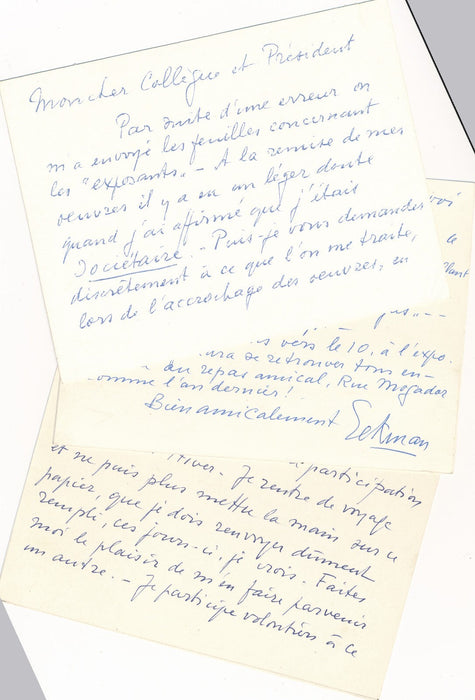 Mon cher Collègue et Président
Par suite d'une erreur on
m'a envoyé les feuilles concernant
les "exposants". - A la remise de mes
oeuvres il y a eu un léger doute
quand j'ai affirmé que j'étais
Sociétaire. - Puis-je vous demander
discrètement à ce que l'on me traite,
lors de l'accrochage des oeuvres, en
vers le 10, à l'expo.
se retrouver tous en-
un repas amical, Rue Mogador
omme l'an dernier!
Bien amicalement
participation
Je rentre de voyage
et ne puis plus mettre la main sur ce
papier, que je dois renvoyer dûment
rempli, ces jours-ci, je crois. Faites
moi le plaisir de m'en faire parvenir
un autre. - Je participe volontiers à ce